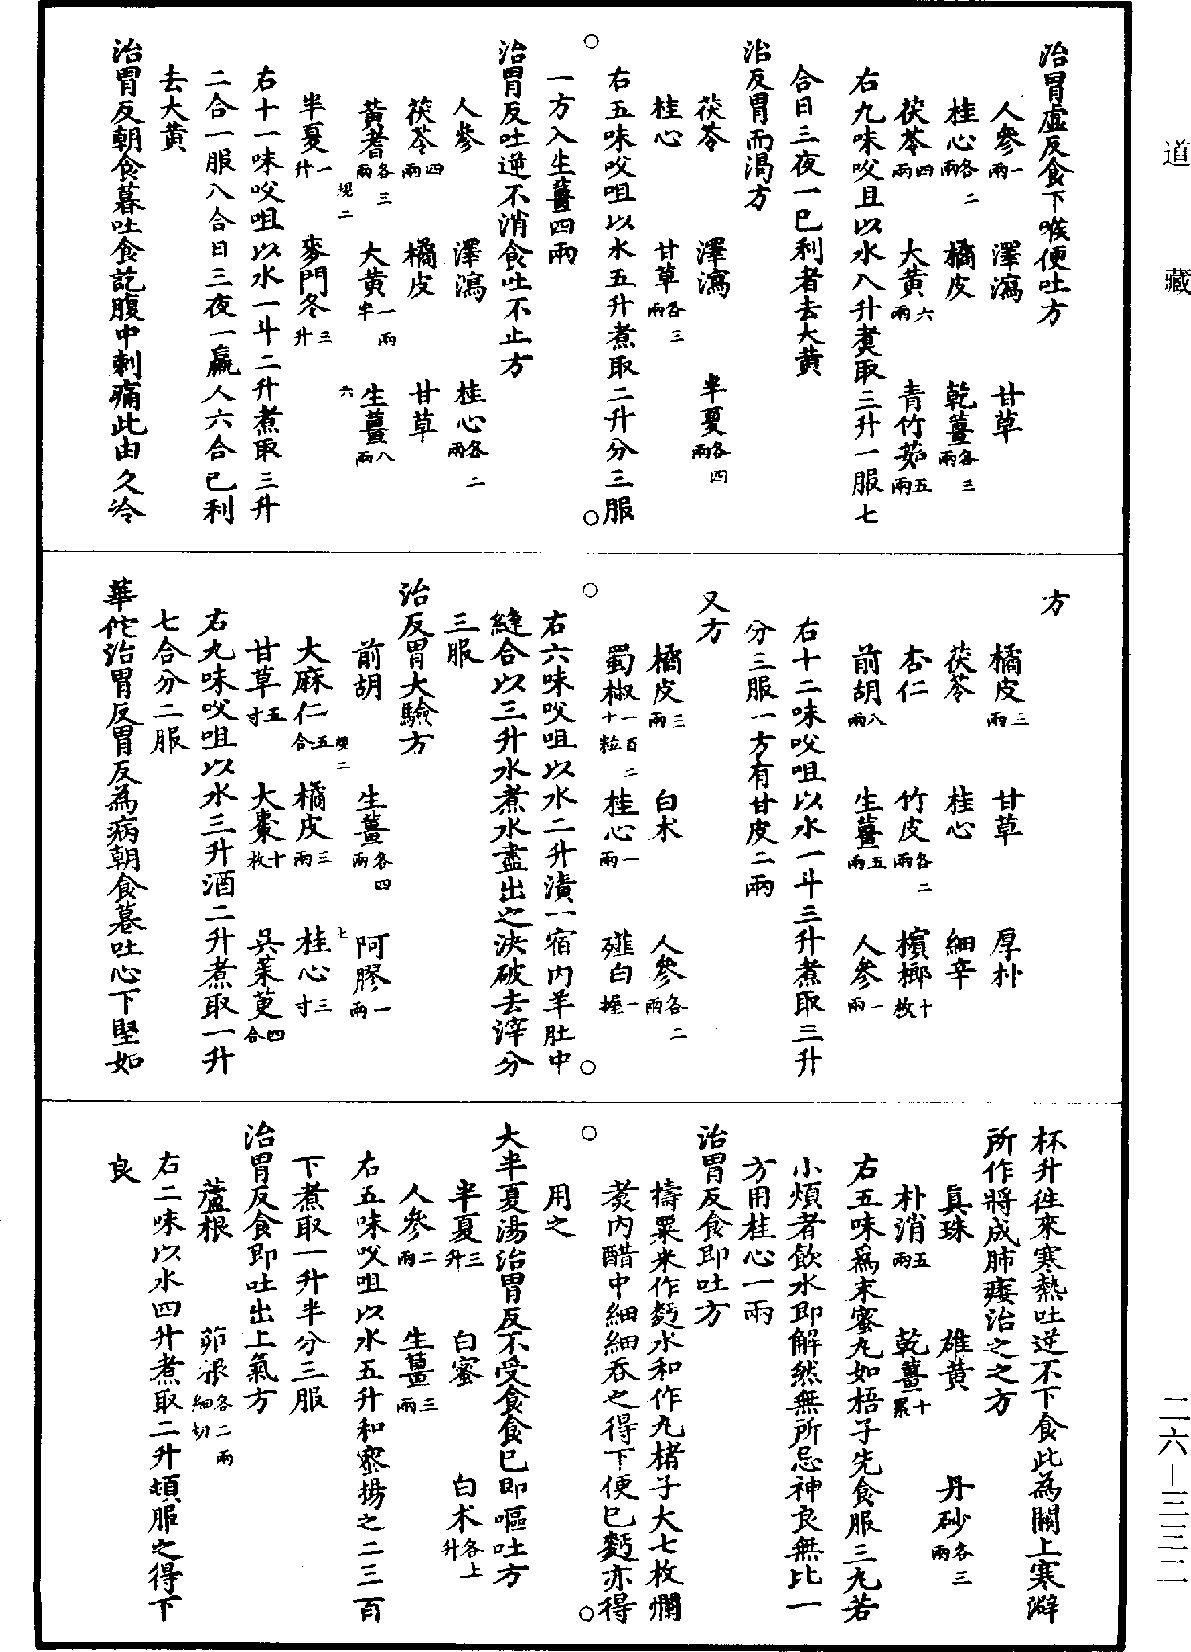 道藏
治胃虛反食下喉便吐方
人參一兩 澤瀉 甘草
桂心各二兩 橘皮 乾薑各三兩
茯苓四兩 大黃六兩 青竹茹五兩
右九味㕮且以水八升煑取三升一服七
合日三夜一巳利者去大黃
治反胃而渴方
茯苓 澤瀉 半夏各四兩
桂心 甘草各三兩
右五味㕮咀以水五升煮取二升分三服
一方入生薑四兩
治胃反吐逆不消食吐不止方
人參 澤瀉 桂心各二兩
茯苓四兩 橘皮 甘草
黃耆各三兩 大黃一兩半 生薑八兩
半夏一升 麥門冬三升
右十一味㕮咀以水一斗二升煮取三升
二合一服八合日三夜一羸人六合已利
去大黃
治胃反朝食暮吐食訖腹中刺痛此由久冷
方
橘皮三兩 甘草 厚朴
茯苓 桂心 細辛
杏仁 竹皮各二兩 檳榔十枚
前胡八兩 生薑五兩 人參一兩
右十二味㕮咀以水一斗三升煮取三升
分三服一方有甘皮二兩
又方
橘皮三兩 白朮 人參各二兩
蜀椒一百二十粒 桂心一兩 薤白一握
右六味㕮咀以水二升漬一宿內羊肚中
縫合以三升水煮水盡出之決破去滓分
三服
治反胃大驗方
前胡 生薑各四兩 阿膠一兩
大麻仁五合 橘皮三兩 桂心三寸
甘草五寸 大棗十枚 吳茱萸四合
右九味㕮咀以水三升酒二升煮取一升
七合分二服
華佗治胃反胃反為病朝食暮吐心下堅如
杯升徃來寒熱吐逆不下食此為關上寒澼
所作將成肺痿治之之方
真珠 雄黃 丹砂各三兩
朴消五兩 乾薑十累
右五味為末蜜丸如梧子先食服三丸若
小煩者飲水即解然無所忌神良無比一
方用桂心一兩
治胃反食即吐方
擣粟米作麫水和作丸楮子大七枚爛
煑內醋中細細吞之得下便巳麫亦得
用之
大半夏湯治胃反不受食食巳即嘔吐方
半夏三升 白蜜 白朮各上升
人參二兩 生薑三兩
右五味㕮咀以水五升和蜜揚之二三百
下煮取一升半分三服
治胃反食即吐出上氣方
蘆根 茆根各二兩細切
右二味以水四升煮取二升頓服之得下
良
二六—三三二